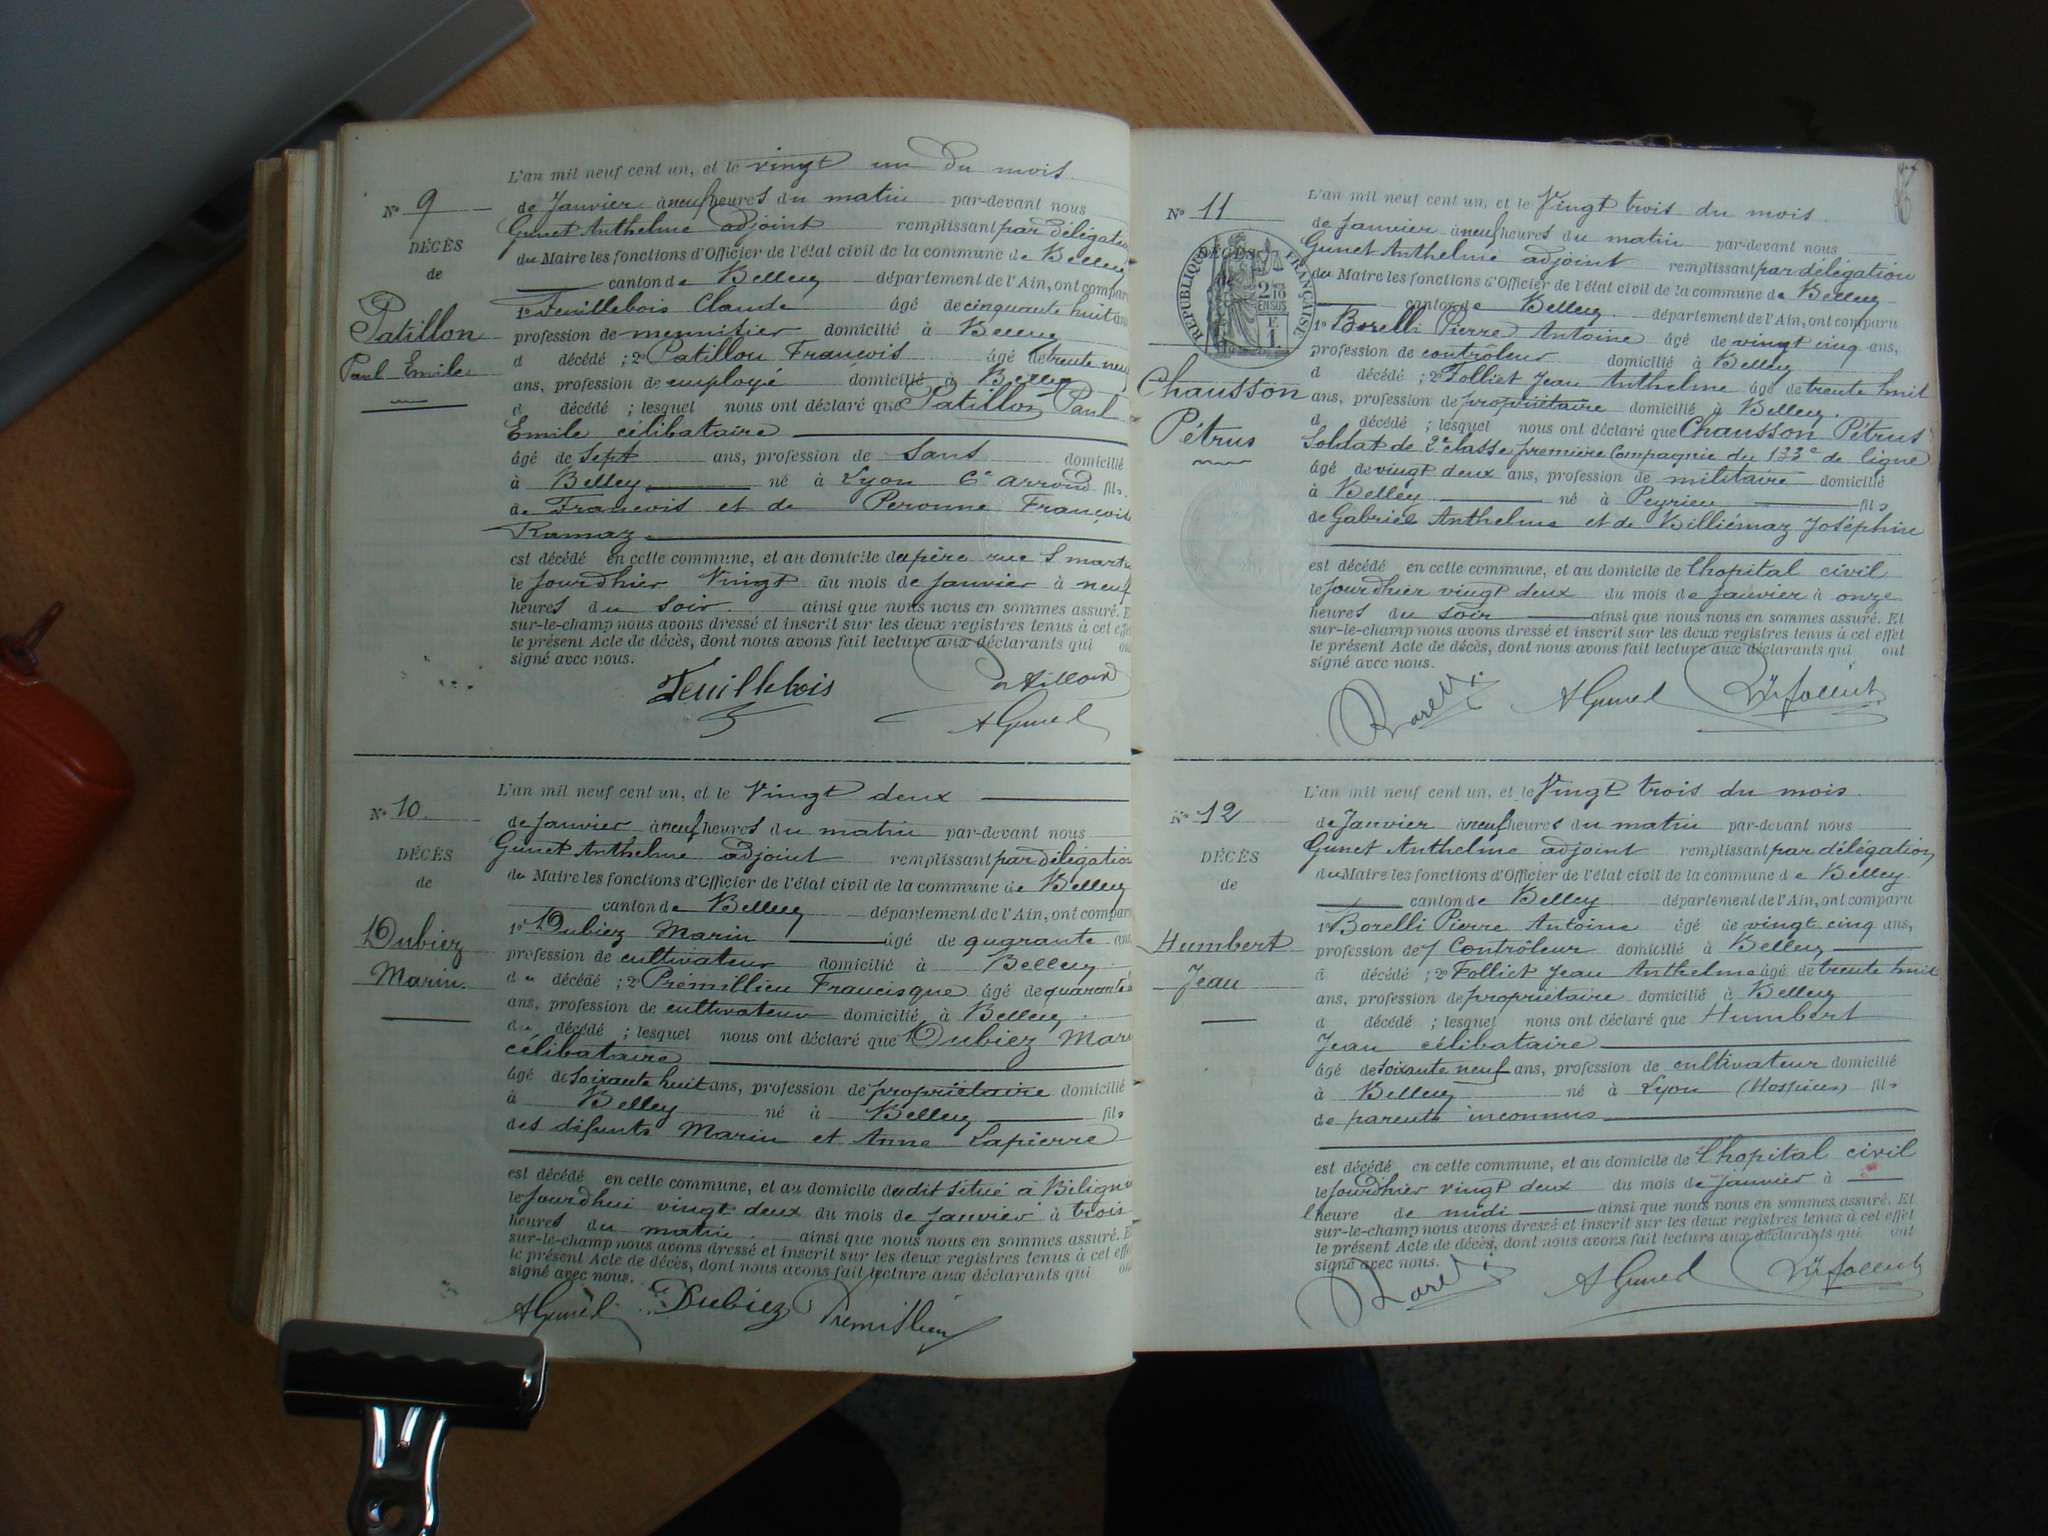 L'an mil neuf cent un, et le vingt un du mois
N° 9
de Janvier à neuf heures du matin par-devant nous
Gunet Anthelme adjoint remplissant par délégation
DÉCÈS
du Maire les fonctions d'Officier de l'état civil de la commune de Belley
de
canton de Belley département de l'Ain, ont comparu
1° Feuillebois Claude âgé de cinquante huit ans
Patillon
profession de menuisier domicilié à Belley
d décédé ; 2° Patillon François âgé de trente neuf
Paul Emile
ans, profession de employé domicilié à Belley
d décédé ; lesquel nous ont déclaré que Patillon Paul
Emile célibataire
âgé de sept ans, profession de sans domicilié
à Belley né à Lyon 6e arrond fils
de François et de Peronne Françoise
Ramaz
est décédé en cette commune, et au domicile du père rue S martin
le jour d'hier Vingt du mois de Janvier à neuf
heures du soir ainsi que nous nous en sommes assuré. Et
sur-le-champ nous avons dressé et inscrit sur les deux registres tenus à cet effet
le présent Acte de décès, dont nous avons fait lecture aux déclarants qui ont
signé avec nous.
Feuillebois Patillon
AGunet
L'an mil neuf cent un, et le Vingt deux
N° 10
de Janvier à neuf heures du matin par-devant nous
Gunet Anthelme adjoint remplissant par délégation
DÉCÈS
du Maire les fonctions d'Officier de l'état civil de la commune de Belley
de
canton de Belley département de l'Ain, ont comparu
1° Dubiez Marin âgé de quarante ans
Dubiez
profession de cultivateur domicilié à Belley
Marin
d décédé ; 2° Prémillieu Francisque âgé de quarante
ans, profession de cultivateur domicilié à Belley
d décédé ; lesquel nous ont déclaré que Dubiez Marin
célibataire
âgé de soixante huit ans, profession de propriétaire domicilié
à Belley né à Belley fils
des défunts Marin et Anne Lapierre
est décédé en cette commune, et au domicile dudit situé à Bilignin
le jourdhui vingt deux du mois de Janvier à trois
heures du matin ainsi que nous nous en sommes assuré. Et
sur-le-champ nous avons dressé et inscrit sur les deux registres tenus à cet effet
le présent Acte de décès, dont nous avons fait lecture aux déclarants qui ont
signé avec nous.
AGunet Dubiez Premillieu
L'an mil neuf cent un, et le Vingt trois du mois
N° 11
de Janvier à neuf heures du matin par-devant nous
Gunet Anthelme adjoint remplissant par délégation
DÉCÈS
RÉPUBLIQUE FRANÇAISE
du Maire les fonctions d'Officier de l'état civil de la commune de Belley
canton de Belley département de l'Ain, ont comparu
1° Borelli Pierre Antoine âgé de vingt cinq ans,
profession de contrôleur domicilié à Belley
Chausson
d décédé ; 2° Folliet Jean Anthelme âgé de trente huit
ans, profession de propriétaire domicilié à Belley
Pétrus
d décédé ; lesquel nous ont déclaré que Chausson Pétrus
Soldat de 2e classe première Compagnie du 133e de ligne
âgé de vingt deux ans, profession de militaire domicilié
à Belley né à Peyrieu fils
de Gabriel Anthelme et de Billiémaz Joséphine
est décédé en cette commune, et au domicile de l'hopital civil
le jourdhier vingt deux du mois de Janvier à onze
heures du soir ainsi que nous nous en sommes assuré. Et
sur-le-champ nous avons dressé et inscrit sur les deux registres tenus à cet effet
le présent Acte de décès, dont nous avons fait lecture aux déclarants qui ont
signé avec nous.
Borelli AGunet Folliet
L'an mil neuf cent un, et le Vingt trois du mois
N° 12
de Janvier à neuf heures du matin par-devant nous
Gunet Anthelme adjoint remplissant par délégation
DÉCÈS
du Maire les fonctions d'Officier de l'état civil de la commune de Belley
de
canton de Belley département de l'Ain, ont comparu
1° Borelli Pierre Antoine âgé de vingt cinq ans,
Humbert
profession de Contrôleur domicilié à Belley
Jean
d décédé ; 2° Folliet Jean Anthelme âgé de trente huit
ans, profession de propriétaire domicilié à Belley
d décédé ; lesquel nous ont déclaré que Humbert
Jean célibataire
âgé de soixante neuf ans, profession de cultivateur domicilié
à Belley né à Lyon (Hospices) fils
de parents inconnus
est décédé en cette commune, et au domicile de l'hopital civil
le jourdhier vingt deux du mois de Janvier à
l'heure de midi ainsi que nous nous en sommes assuré. Et
sur-le-champ nous avons dressé et inscrit sur les deux registres tenus à cet effet
le présent Acte de décès, dont nous avons fait lecture aux déclarants qui ont
signé avec nous.
Borelli AGunet Folliet